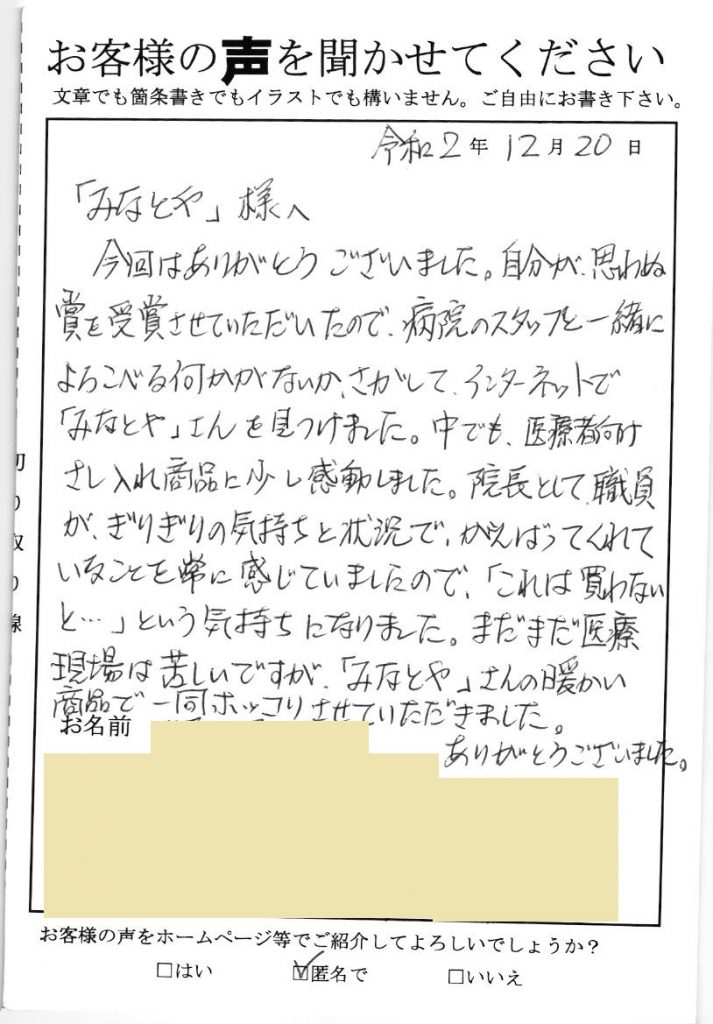 お客様の声を聞かせてください
文章でも箇条書きでもイラストでも構いません。ご自由にお書き下さい。
令和2年12月20日
「みなとや」様へ
今回はありがとうございました。自分が、思わぬ
賞を受賞させていただいたので、病院のスタッフと一緒に
よろこべる何かがないか、さがして、インターネットで
「みなとや」さんを見つけました。中でも、医療者向け
さし入れ商品に少し感動しました。院長として、職員
が、ぎりぎりの気持ちと状況で、がんばってくれて
いることを常に感じていましたので、「これは買わない
と…」という気持ちになりました。まだまだ医療
現場は苦しいですが、「みなとや」さんの暖かい
商品で一同ホッコリさせていただきました。
ありがとうございました。
お名前
切り取り線
お客様の声をホームページ等でご紹介してよろしいでしょうか？
□はい ☑匿名で □いいえ